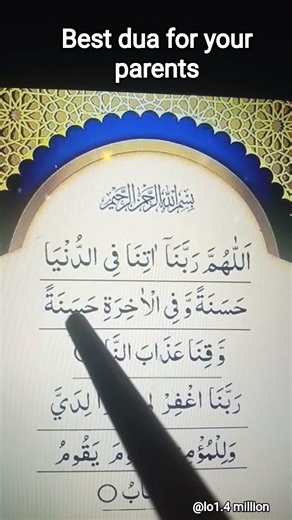 Best dua for your
parents
بِسْمِ اللهِ الرَّحْمٰنِ الرَّحِيْمِ
اَللّٰهُمَّ رَبَّنَآ اٰتِنَا فِي الدُّنْيَا
حَسَنَةً وَّ فِي الْاٰخِرَةِ حَسَنَةً
وَّقِنَا عَذَابَ
رَبَّنَا اغْفِرْ
يَقُومُ
@lo1.4 million